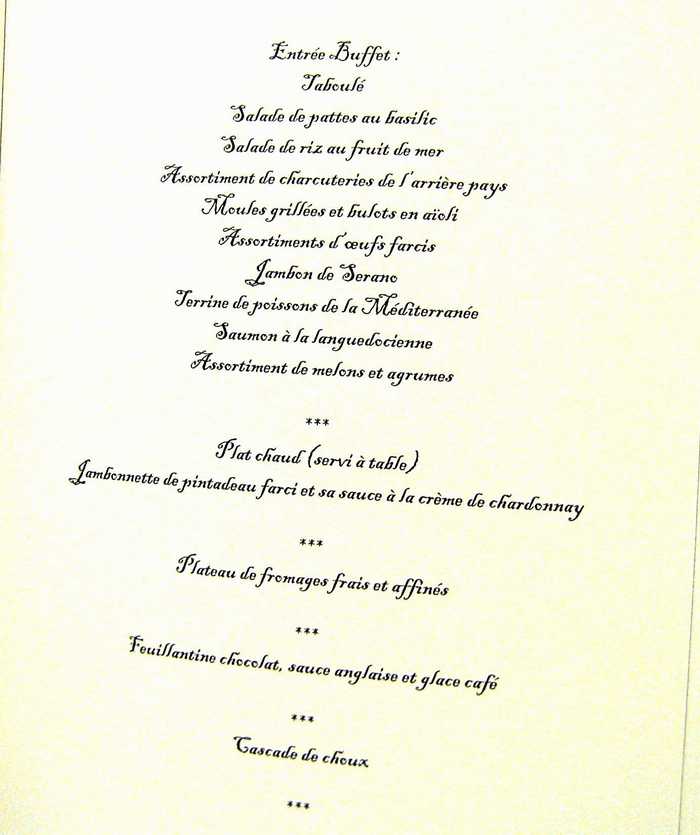 Entrée Buffet :
Taboulé
Salade de pattes au basilic
Salade de riz au fruit de mer
Assortiment de charcuteries de l'arrière pays
Moules grillées et bulots en aïoli
Assortiments d'œufs farcis
Jambon de Serano
Terrine de poissons de la Méditerranée
Saumon à la languedocienne
Assortiment de melons et agrumes
***
Plat chaud (servi à table)
Jambonnette de pintadeau farci et sa sauce à la crème de chardonnay
***
Plateau de fromages frais et affinés
***
Feuillantine chocolat, sauce anglaise et glace café
***
Cascade de choux
***